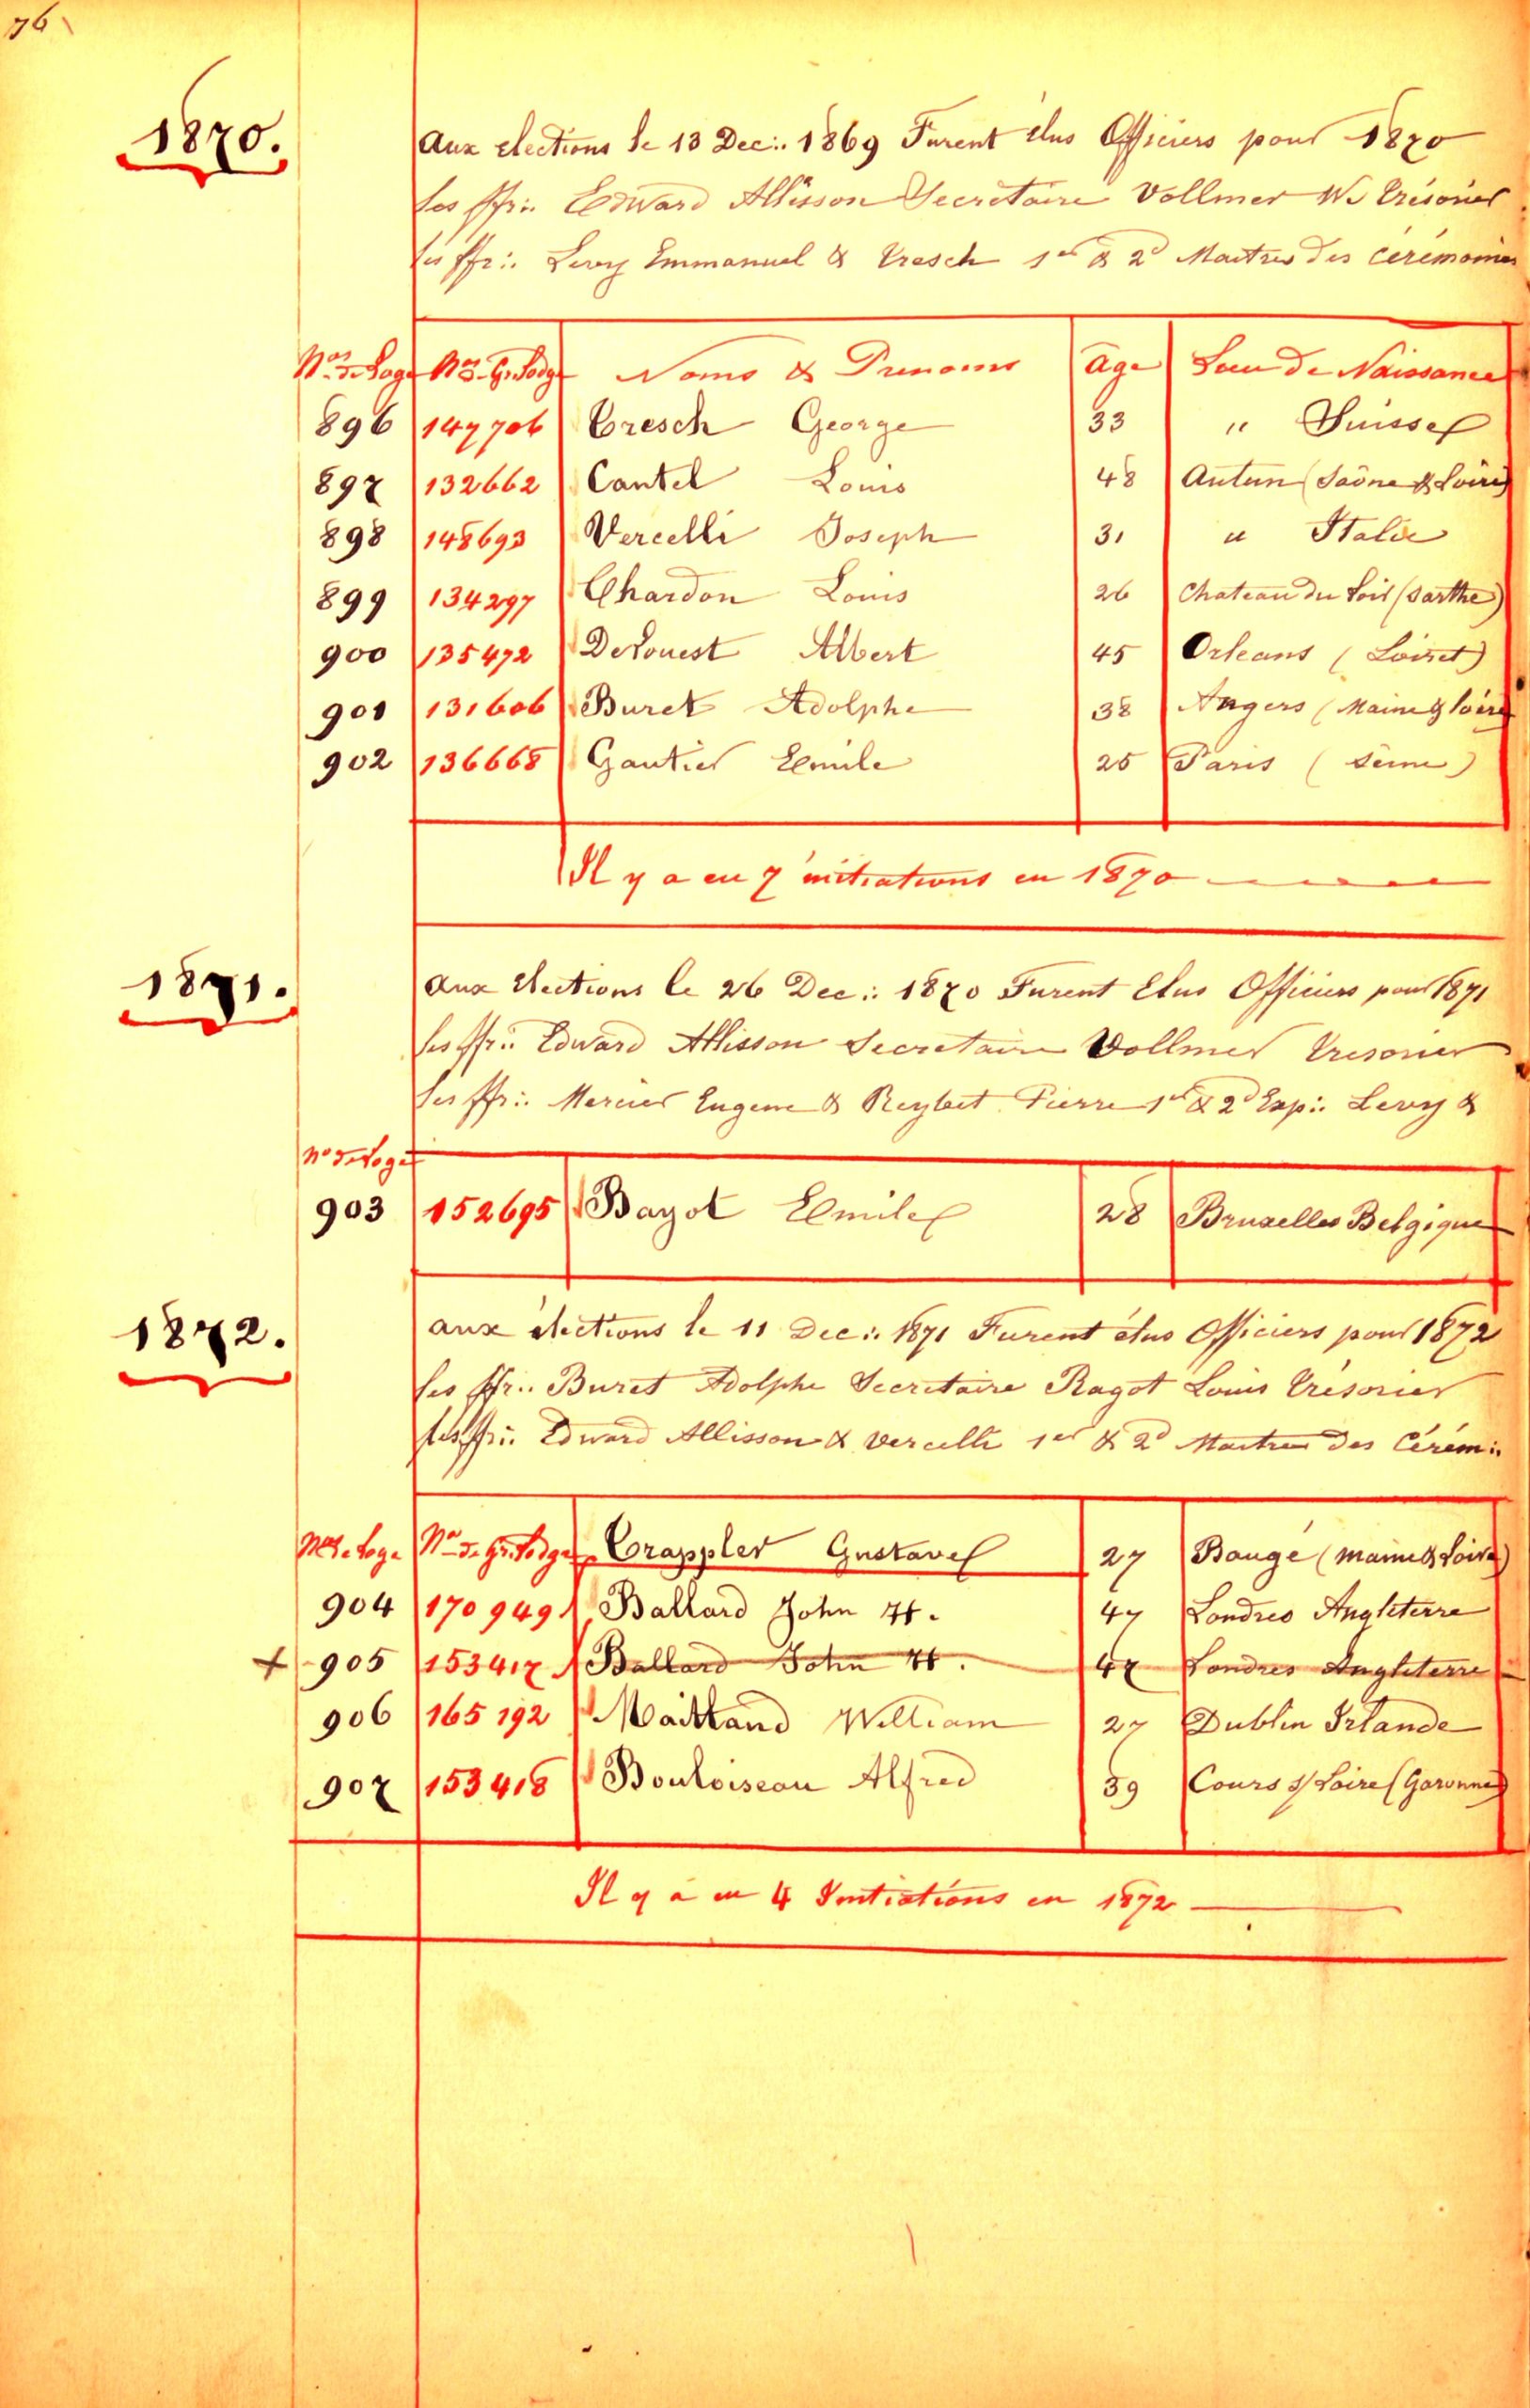 76
1870.
Aux elections le 13 Dec:. 1869 Furent élus Officiers pour 1870
Les ffr:. Edward Allisson Secretaire Vollmer W. Trésorier
les ffr:. Levy Emmanuel & Tresch 1er & 2d Maitres des Cérémonies
Nos de Loge Nos Gr. Lodge Noms & Prenoms Age Lieu de Naissance
896 147706 Tresch George 33 " Suisse
897 132662 Cantel Louis 48 Autun (Saône & Loire)
898 148693 Vercelli Joseph 31 " Italie
899 134297 Chardon Louis 26 Chateau du Loir (Sarthe)
900 135472 Delouest Albert 45 Orleans (Loiret)
901 131606 Buret Adolphe 38 Angers (Maine & Loire)
902 136668 Gautier Emile 25 Paris (Seine)
Il y a eu 7 initiations en 1870
1871.
Aux Elections le 26 Dec:. 1870 Furent Elus Officiers pour 1871
les ffr:. Edward Allisson Secretaire Vollmer Tresorier
les ffr:. Mercier Eugene & Reybet Pierre 1er & 2d Exp:. Levy &
No de Loge
903 152695 Bayot Emile 28 Bruxelles Belgique
1872.
aux élections le 11 Dec:. 1871 Furent élus Officiers pour 1872
les ffr:. Buret Adolphe Secretaire Ragot Louis Trésorier
les ffr:. Edward Allisson & Vercelli 1er & 2d Maitres des Cérém:.
Nos de Loge Nos de Gr. Lodge Trappler Gustave 27 Baugé (Maine & Loire)
904 170949 Ballard John H. 47 Londres Angleterre
x 905 153417 Ballard John H. 47 Londres Angleterre
906 165192 Maitland William 27 Dublin Irlande
907 153418 Bouloiseau Alfred 39 Cours s/ Loire (Garonne)
Il y a eu 4 Initiations en 1872